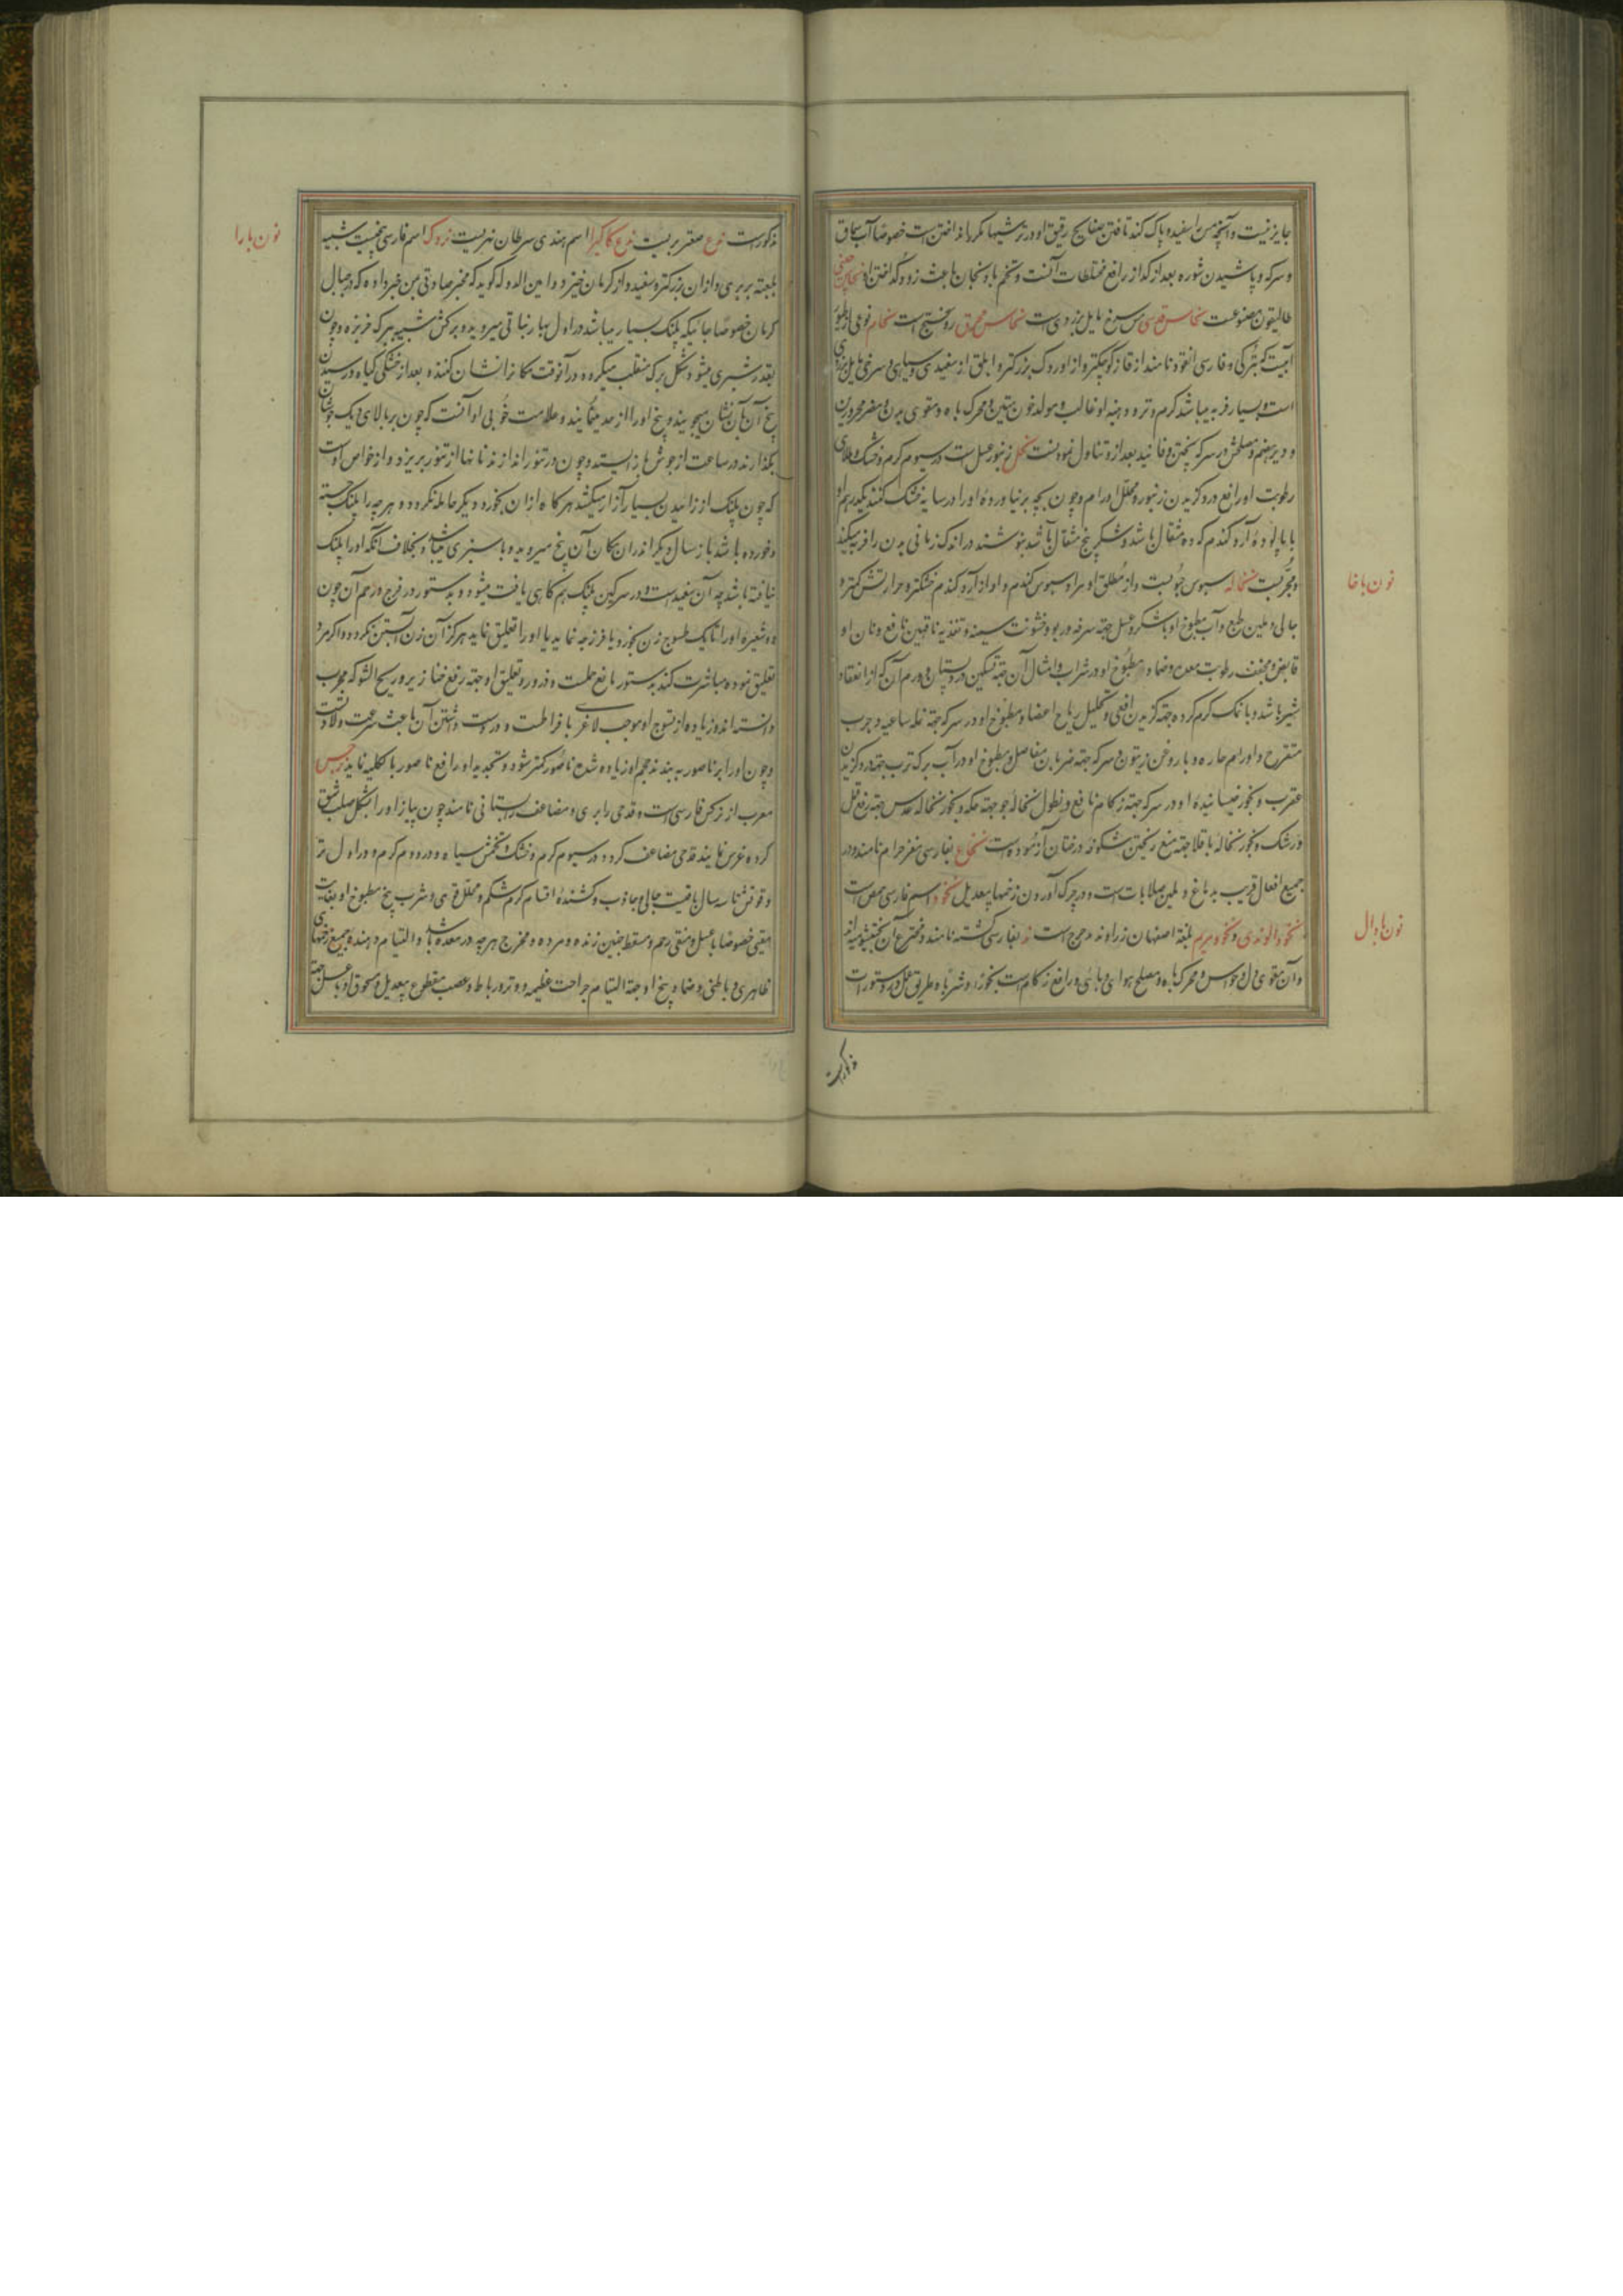 جایز نیست و آنچه مس را سفید و پاک کند تافتن صفایح رقیق او در ترشیها مکرر یا گداختن است خصوصا آب سماق
و سرکه و پاشیدن شوره بعد از گداز رافع مختلطات آنست و تخم بادنجان باعث زود گداختن او نحاس صینی
طالیقون مصنوعست نحاس قبرسی مس سرخ مایل بزردی است نحاس محرق روسختج است نحام نوعی از طیور
آبیست که بترکی و فارسی انقود نامند از قاز کوچکتر و از اوردک بزرکتر و ابلق از سفیدی و سیاهی و سرخی مایل بزردی
است و بسیار فربه میباشد گرم و تر و دهنیه او غالب و مولد خون متین و محرک باه و مقوی بدن و مضر محرورین
و دیرهضم و مصلحش در سرکه پختن و فانید بعد از او تناول نمودنست نحل زنبور عسل است در سیوم گرم و خشک و طلای
رطوبت او رافع درد گزیدن زنبور و محلل اورام و چون بچه بر نیاورده او را در سایه خشک کنند یکدرهم او
با پالوده آرد گندم که ده مثقال باشد و شکر پنج مثقال باشد بنوشند در اندک زمانی بدن را فربه میکند
و مجربست نخاله سبوس جو بست و از مطلق او مراد سبوس گندم و او از آرد گندم خشکتر و حرارتش کمتر و
جالی و ملین طبع و آب مطبوخ او با شکر و عسل جهته سرفه و ربو و خشونت سینه و تغذیه ناقهین نافع و نان او
قابض و مجفف رطوبت معده و ضماد مطبوخ او در شراب و امثال آن جهته تسکین درد پستان و ورم آن که از انعقاد
شیر باشد و با نمک گرم کرده جهته گزیدن افعی و تحلیل ریاح اعضا و مطبوخ او در سرکه جهته نمله ساعیه و جرب
متقرح و اورام حاره و با روغن زیتون و سرکه جهته ضربان مفاصل و مطبوخ او در آب برک ترب جهته درد گزیدن
عقرب و بخور خیسانیده او در سرکه جهته زکام نافع و نطول نخاله جو جهته حکه و بخور نخاله عدس جهته رفع ثقل
و رشک و بخور نخاله باقلا جهته منع ریختن شکوفه درختان آزموده است نخاع بفارسی مغز حرام نامند و در
جمیع افعال قریب بدماغ و ملین صلابات است و در چرک آوردن زخمها بیعدیل نخود اسم فارسی حمص است
نخود الوندی و نخود مریم بلغة اصفهان زراوند مدحرج است ند بفارسی کشته نامند و مخترع آن بختیشوع میداند
و آن مقوی دل و حواس و محرک باه و مصلح هوای وبائی و رافع زکام است بخورا و شربا و طریق عمل در دستورات
مذکور است
نون با خا
نون با دال
مذکور است ندغ صعتر بریست ندغ کاکیرا اسم هندی سرطان نهریست نردک اسم فارسی بیخیست شبیه
بلعبته بربری و از ان بزرکتر و سفید و از کرمان خیزد و امین الدوله گوید که مخبر صادقی بمن خبر داده که در جبال
کرمان خصوصا جائیکه پلنگ بسیار میباشد در اول بهار نباتی میروید و برگش شبیه ببرک خربزه و چون
بقدر شبری میشود شکل برک منقلب میگردد و در آنوقت مکان را نشان کنند و بعد از خشکی گیاه و رسیدن
بیخ آن بآن نشان میجویند و بیخ او را از حد مینمایند و علامت خوبی او آنست که چون بر بالای دیک جوشان
بگذارند در ساعت از جوش باز ایستد و چون در تنور اندازند نانها از تنور بریزد و از خواص اوست
که چون پلنگ از زاییدن بسیار آزار میکشد هرگاه از ان بخورد دیگر حامله نگردد و هر چه را پلنگ جسته
و خورده باشد باز سال دیگر اندران مکان آن بیخ میروید و با سبزی میباشد و بخلاف آنکه او را پلنگ
نیافته باشد چه آن سفید است و در سرگین پلنگ هم گاهی یافت میشود و بدستور در فرج و رحم آن چون
دو شعیره او را تا یک طسوج زن بخورد یا فرزجه نماید یا او را تعلیق نماید هرگز آن زن آبستن نگردد و اگر مرد
تعلیق نموده مباشرت کند بدستور مانع حملست و ذرور و تعلیق او جهته رفع خنازیر و ریح الشوکه مجرب
دانسته اند و زیاده از تسوج او موجب لاغری بافراطست و در دست داشتن آن باعث سرعت ولادتست
و چون او را بر ناصور به بندند حجم او زیاده شده ناصور کمتر شود و تجدید او رافع ناصور بالکلیه نماید نرجس
معرب از نرگس فارسی است و قدحی را بری و مضاعف را بستانی نامند چون پیاز او را بشکل صلیب شق
کرده غرس نمایند قدحی مضاعف گردد در سیوم گرم و خشک و تخمش سیاه و در دوم گرم و در اول تر
و قوتش تا سه سال باقیست جالی و جاذب و کشنده اقسام کرم شکم و محلل قوی و شرب بیخ مطبوخ او بغایت
مقیی خصوصا با عسل و منقی رحم و مسقط جنین زنده و مرده و مخرج هر چه در معده باشد و التیام دهنده جمیع زخمهای
ظاهری و باطنی و ضماد بیخ او جهته التیام جراحت عظیمه و وتر و رباط و عصب مقطوع بیعدیل و مسحوق او با عسل جهته
نون با را